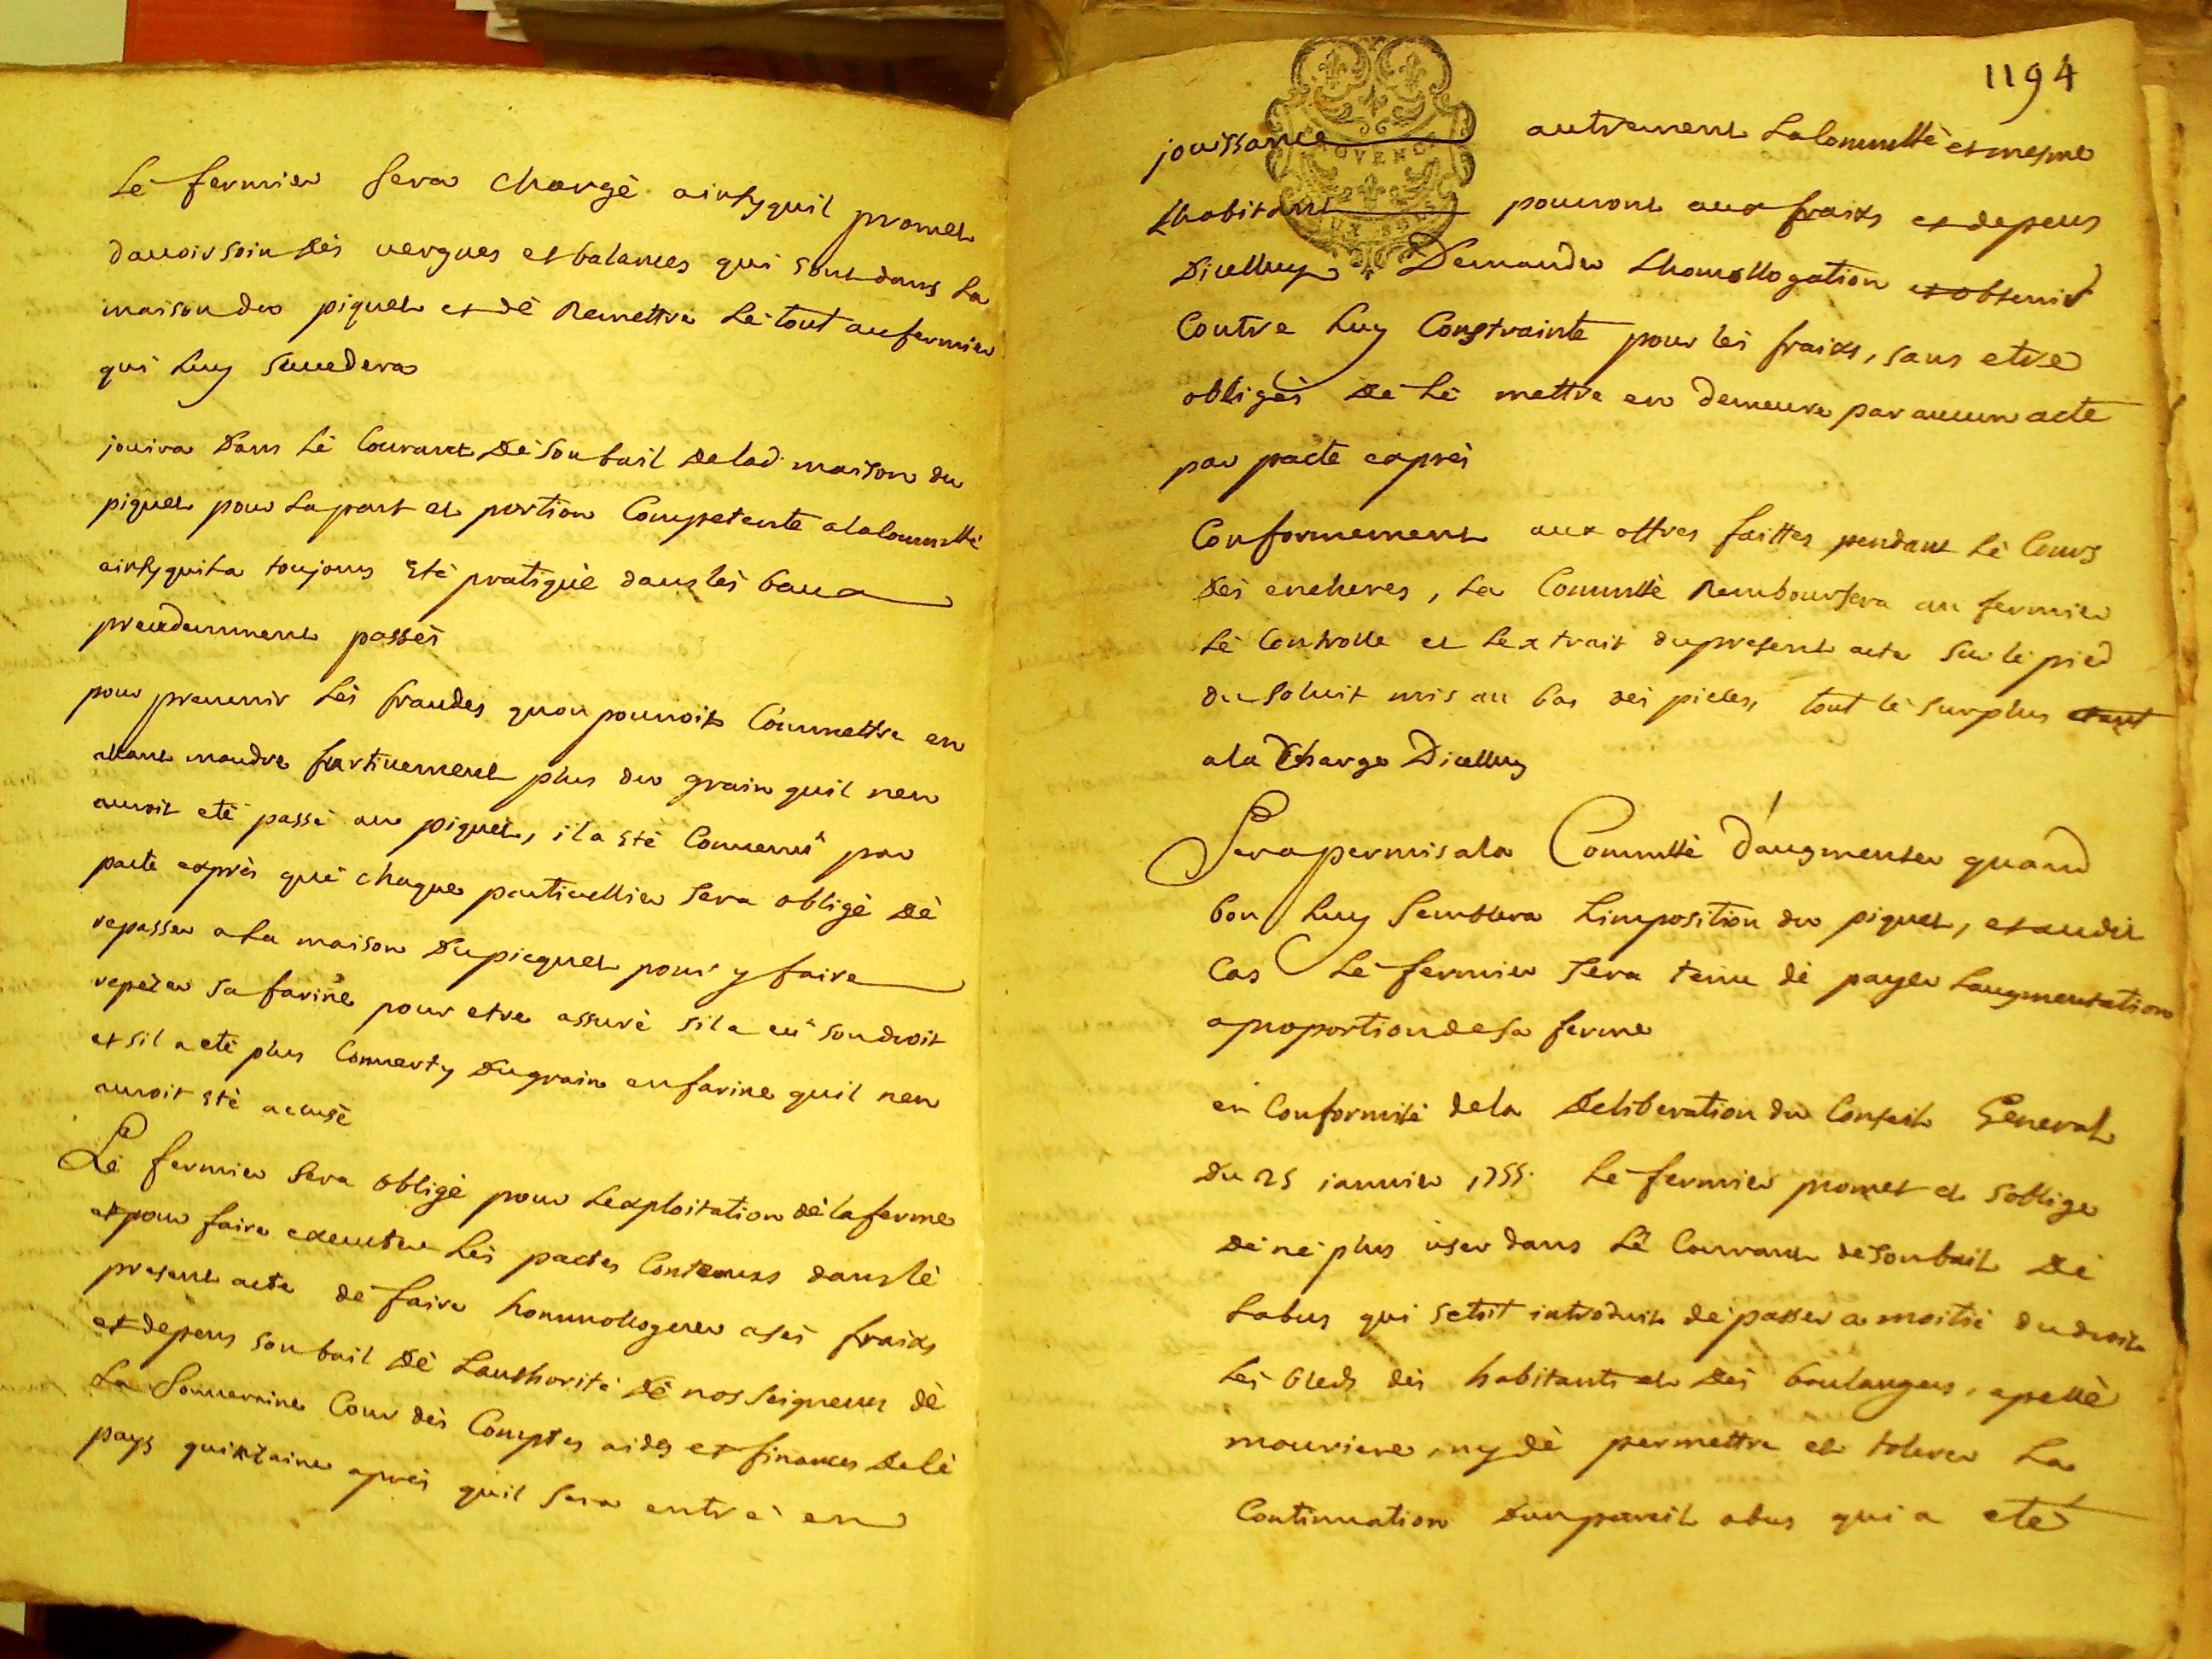 Lé fermier sera chargé ainsy quil promet
davoir soin des vergues et balances qui sont dans la
maison du piquet et dé Remettre Lé tout au fermier
qui Luy succedera
jouira dans Lé Courant dé son bail de lad. maison du
piquet pour La part et portion Competente a la Commtté
ainsy quil a toujours eté pratiqué dans lés baux
precedemment passés
pour prevenir Lés fraudes quon pourroit Commettre en
allant moudre furtivement plus du grain quil nen
auroit eté passé au piquet, il a eté Convenu par
pacte exprés qué chaque particullier sera obligé dé
repasser a La maison du picquet pour y faire
repézer sa farine pour etre assuré sil a eu son droit
et sil a eté plus Converty du grain en farine quil nen
auroit eté accusé
Lé fermier sera obligé pour Lexploitation dé la ferme
et pour faire executer Lés pactes Contenus dans lé
present acte dé faire hommologuer a sés fraixs
et depens son bail dé Lauthorité dé nos seigneurs dé
La Souveraine Cour dés Comptes aides et finances dé cé
pays quinzaine aprés quil sera entré en
1194
jouissance autrement La Commtté et mesme
Lhabitant pourront aux fraixs et depens
Dicelluy Demander Lhomollogation et obtenir
Contre Luy Constrainte pour lés fraixs, sans etre
obligés dé Lé mettre en demeure par aucun acte
par pacte exprés
Conformement aux offres faittes pendant Lé Cours
dés encheres, La Commtté Remboursera au fermier
Lé Controlle et Lextrait du present acte sur lé pied
du soluit mis au bas dés pieces, tout lé surplus etant
a la Charge Dicelluy
Sera permis a la Commtté D'augmenter quand
bon Luy Semblera Limposition du piquet, et audit
Cas Lé fermier sera tenu dé payer Laugmentation
a proportion de sa ferme
en Conformité de la deliberation du Conseil General
du 25 janvier 1755. Lé fermier promet et soblige
dé né plus user dans Lé Courant dé son bail dé
Labus qui setoit introduit dé passer a moitié du droit
Lés bleds dés habitants et dés boulangers, apellé
mouriere, ny dé permettre et tolerer La
Continuation dun pareil abus qui a eté